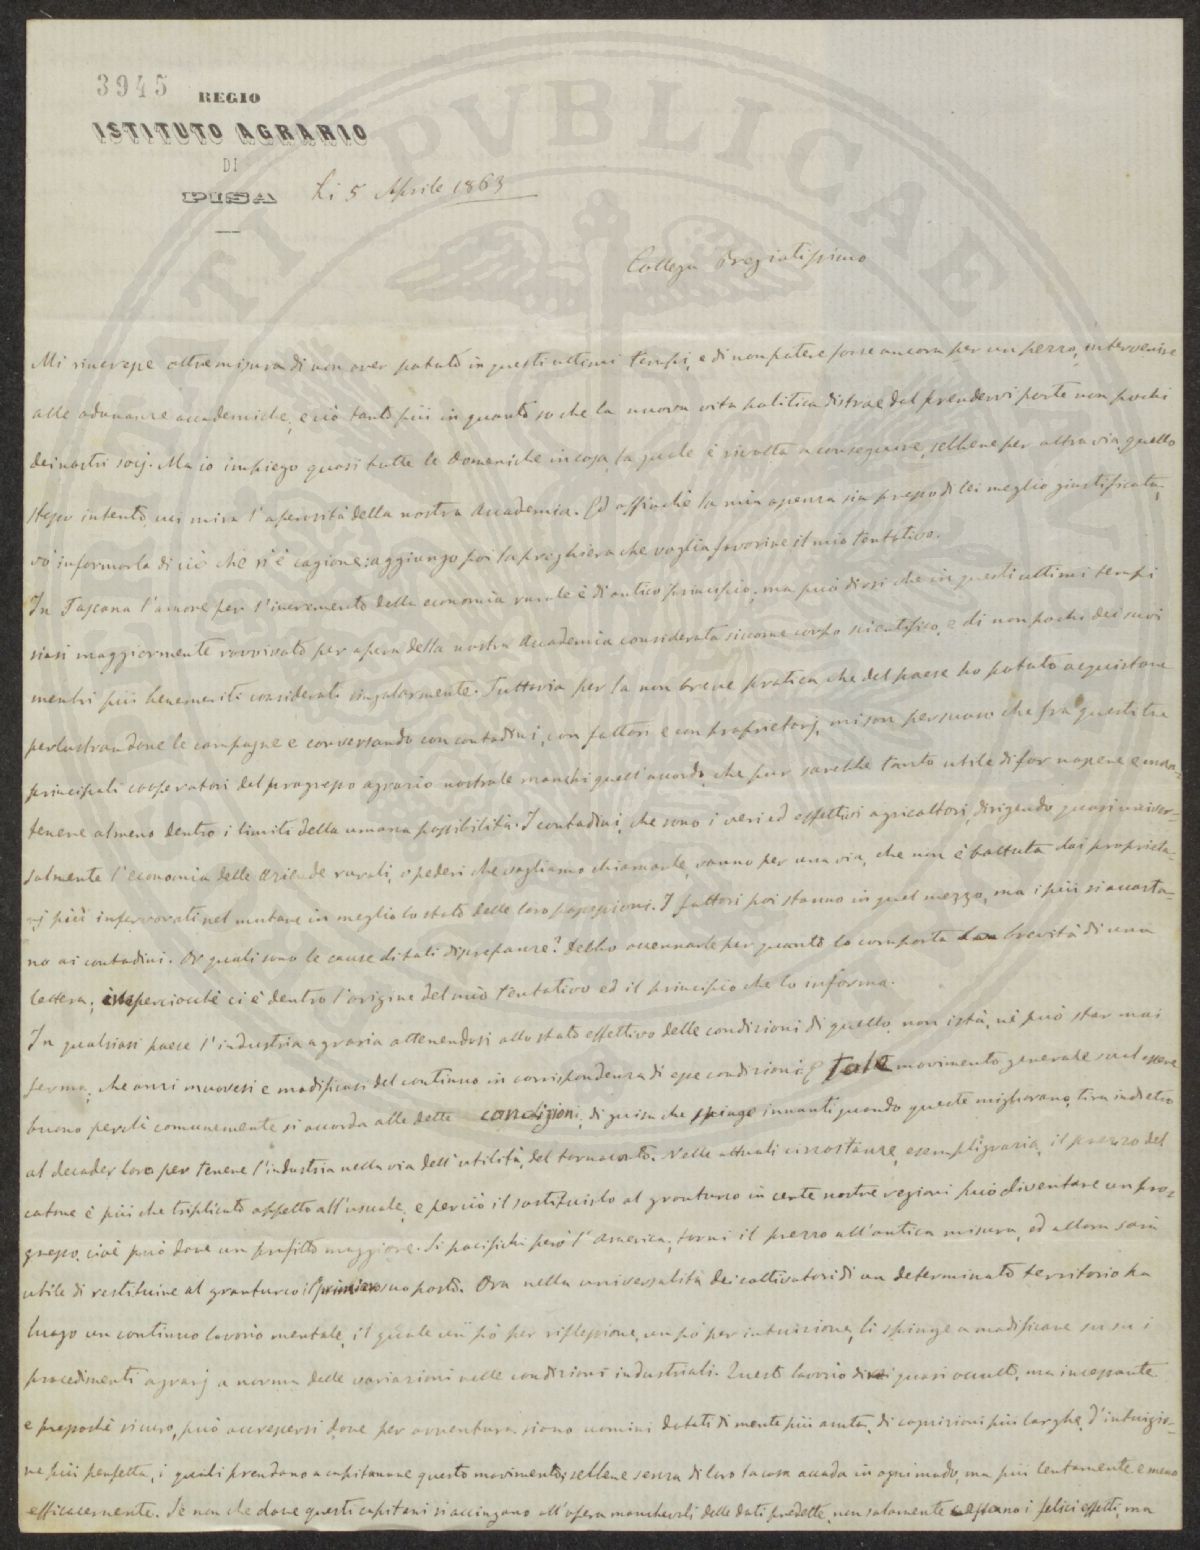 3945
REGIO
ISTITUTO AGRARIO
DI
PISA
Li 5 Aprile 1863
Collega Pregiatissimo
Mi rincresce oltre misura di non aver potuto in questi ultimi tempi, e di non potere forse ancora per un pezzo, intervenire
alle adunanze accademiche; e ciò tanto più in quanto so che la nuova vita politica distrae dal prendervi parte non pochi
dei nostri socj. Ma io impiego quasi tutte le Domeniche in cosa, la quale è rivolta a conseguire, sebbene per altra via, quello
stesso intento cui mira l'operosità della nostra Accademia. Ed affinchè la mia assenza sia presso di lei meglio giustificata,
vò informarla di ciò che n'è cagione; aggiungo poi la preghiera che voglia favorire il mio tentativo.
In Toscana l'amore per l'incremento della economia rurale è di antico principio, ma può dirsi che in questi ultimi tempi
siasi maggiormente ravvivato per opera della nostra Accademia considerata siccome corpo scientifico, e di non pochi dei suoi
membri più benemeriti considerati singolarmente. Tuttavia per la non breve pratica che del paese ho potuto acquistare
perlustrandone le campagne e conversando con contadini, con fattori e con proprietarj, mi son persuaso che fra questi tre
principali cooperatori del progresso agrario nostrale manchi quell'accordo, che pur sarebbe tanto utile di far nascere e man-
tenere almeno dentro i limiti della umana possibilità. I contadini, che sono i veri ed effettivi agricoltori, dirigendo quasi univer-
salmente l'economia delle aziende rurali, o poderi che vogliamo chiamarle, vanno per una via, che non è battuta dai proprieta-
rj più infervorati nel mutare in meglio lo stato delle loro possessioni. I fattori poi stanno in quel mezzo, ma i più si accosta-
no ai contadini. Or quali sono le cause di tali discrepanze? Debbo accennarle per quanto lo comporta la brevità di una
lettera; imperciocchè ci è dentro l'origine del mio tentativo ed il principio che lo informa.
In qualsiasi paese l'industria agraria attenendosi allo stato effettivo delle condizioni di quello, non istà, nè può star mai
ferma; che anzi muovesi e modificasi del continuo in corrispondenza di esse condizioni. E tale movimento generale suol essere
buono perchè comunemente si accorda alle dette condizioni, di guisa che spinge innanti quando queste migliorano, tira indietro
al decader loro per tenere l'industria nella via dell'utilità, del tornaconto. Nelle attuali circostanze, esempligrazia, il prezzo del
cotone è più che triplicato rispetto all'usuale, e perciò il sostituirlo al granturco in certe nostre regioni può diventare un pro-
gresso, cioè può dare un profitto maggiore. Si pacifichi però l'America, torni il prezzo all'antica misura, ed allora sarà
utile di restituire al granturco il primiero suo posto. Ora nella universalità dei coltivatori di un determinato territorio ha
luogo un continuo lavorio mentale, il quale un pò per riflessione, un pò per intuizione, li spinge a modificare su su i
procedimenti agrarj a norma delle variazioni nelle condizioni industriali. Questo lavorio dirsi quasi occulto, ma incessante
e pressochè sicuro, può accrescersi dove per avventura siano uomini dotati di mente più acuta, di cognizioni più larghe, d'intuizio-
ne più perfetta, i quali prendano a capitanare questo movimento; sebbene senza di loro la cosa accada in ogni modo, ma più lentamente e meno
efficacemente. Se non che dove questi capitani si accingano all'opera manchevoli delle doti predette, non solamente cessano i felici effetti, ma